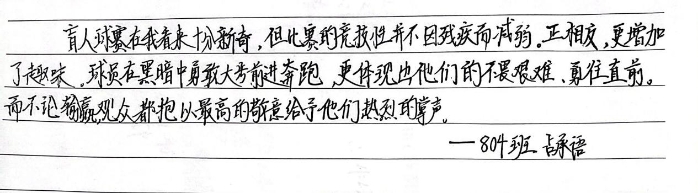 盲人球赛在我看来十分新奇，但比赛的竞技性并不因残疾而减弱。正相反，更增加
了趣味。球员在黑暗中勇敢大步前进奔跑，更体现出他们的不畏艰难、勇往直前。
而不论输赢观众都抱以最高的敬意给予他们热烈的掌声。
—804班 占承语